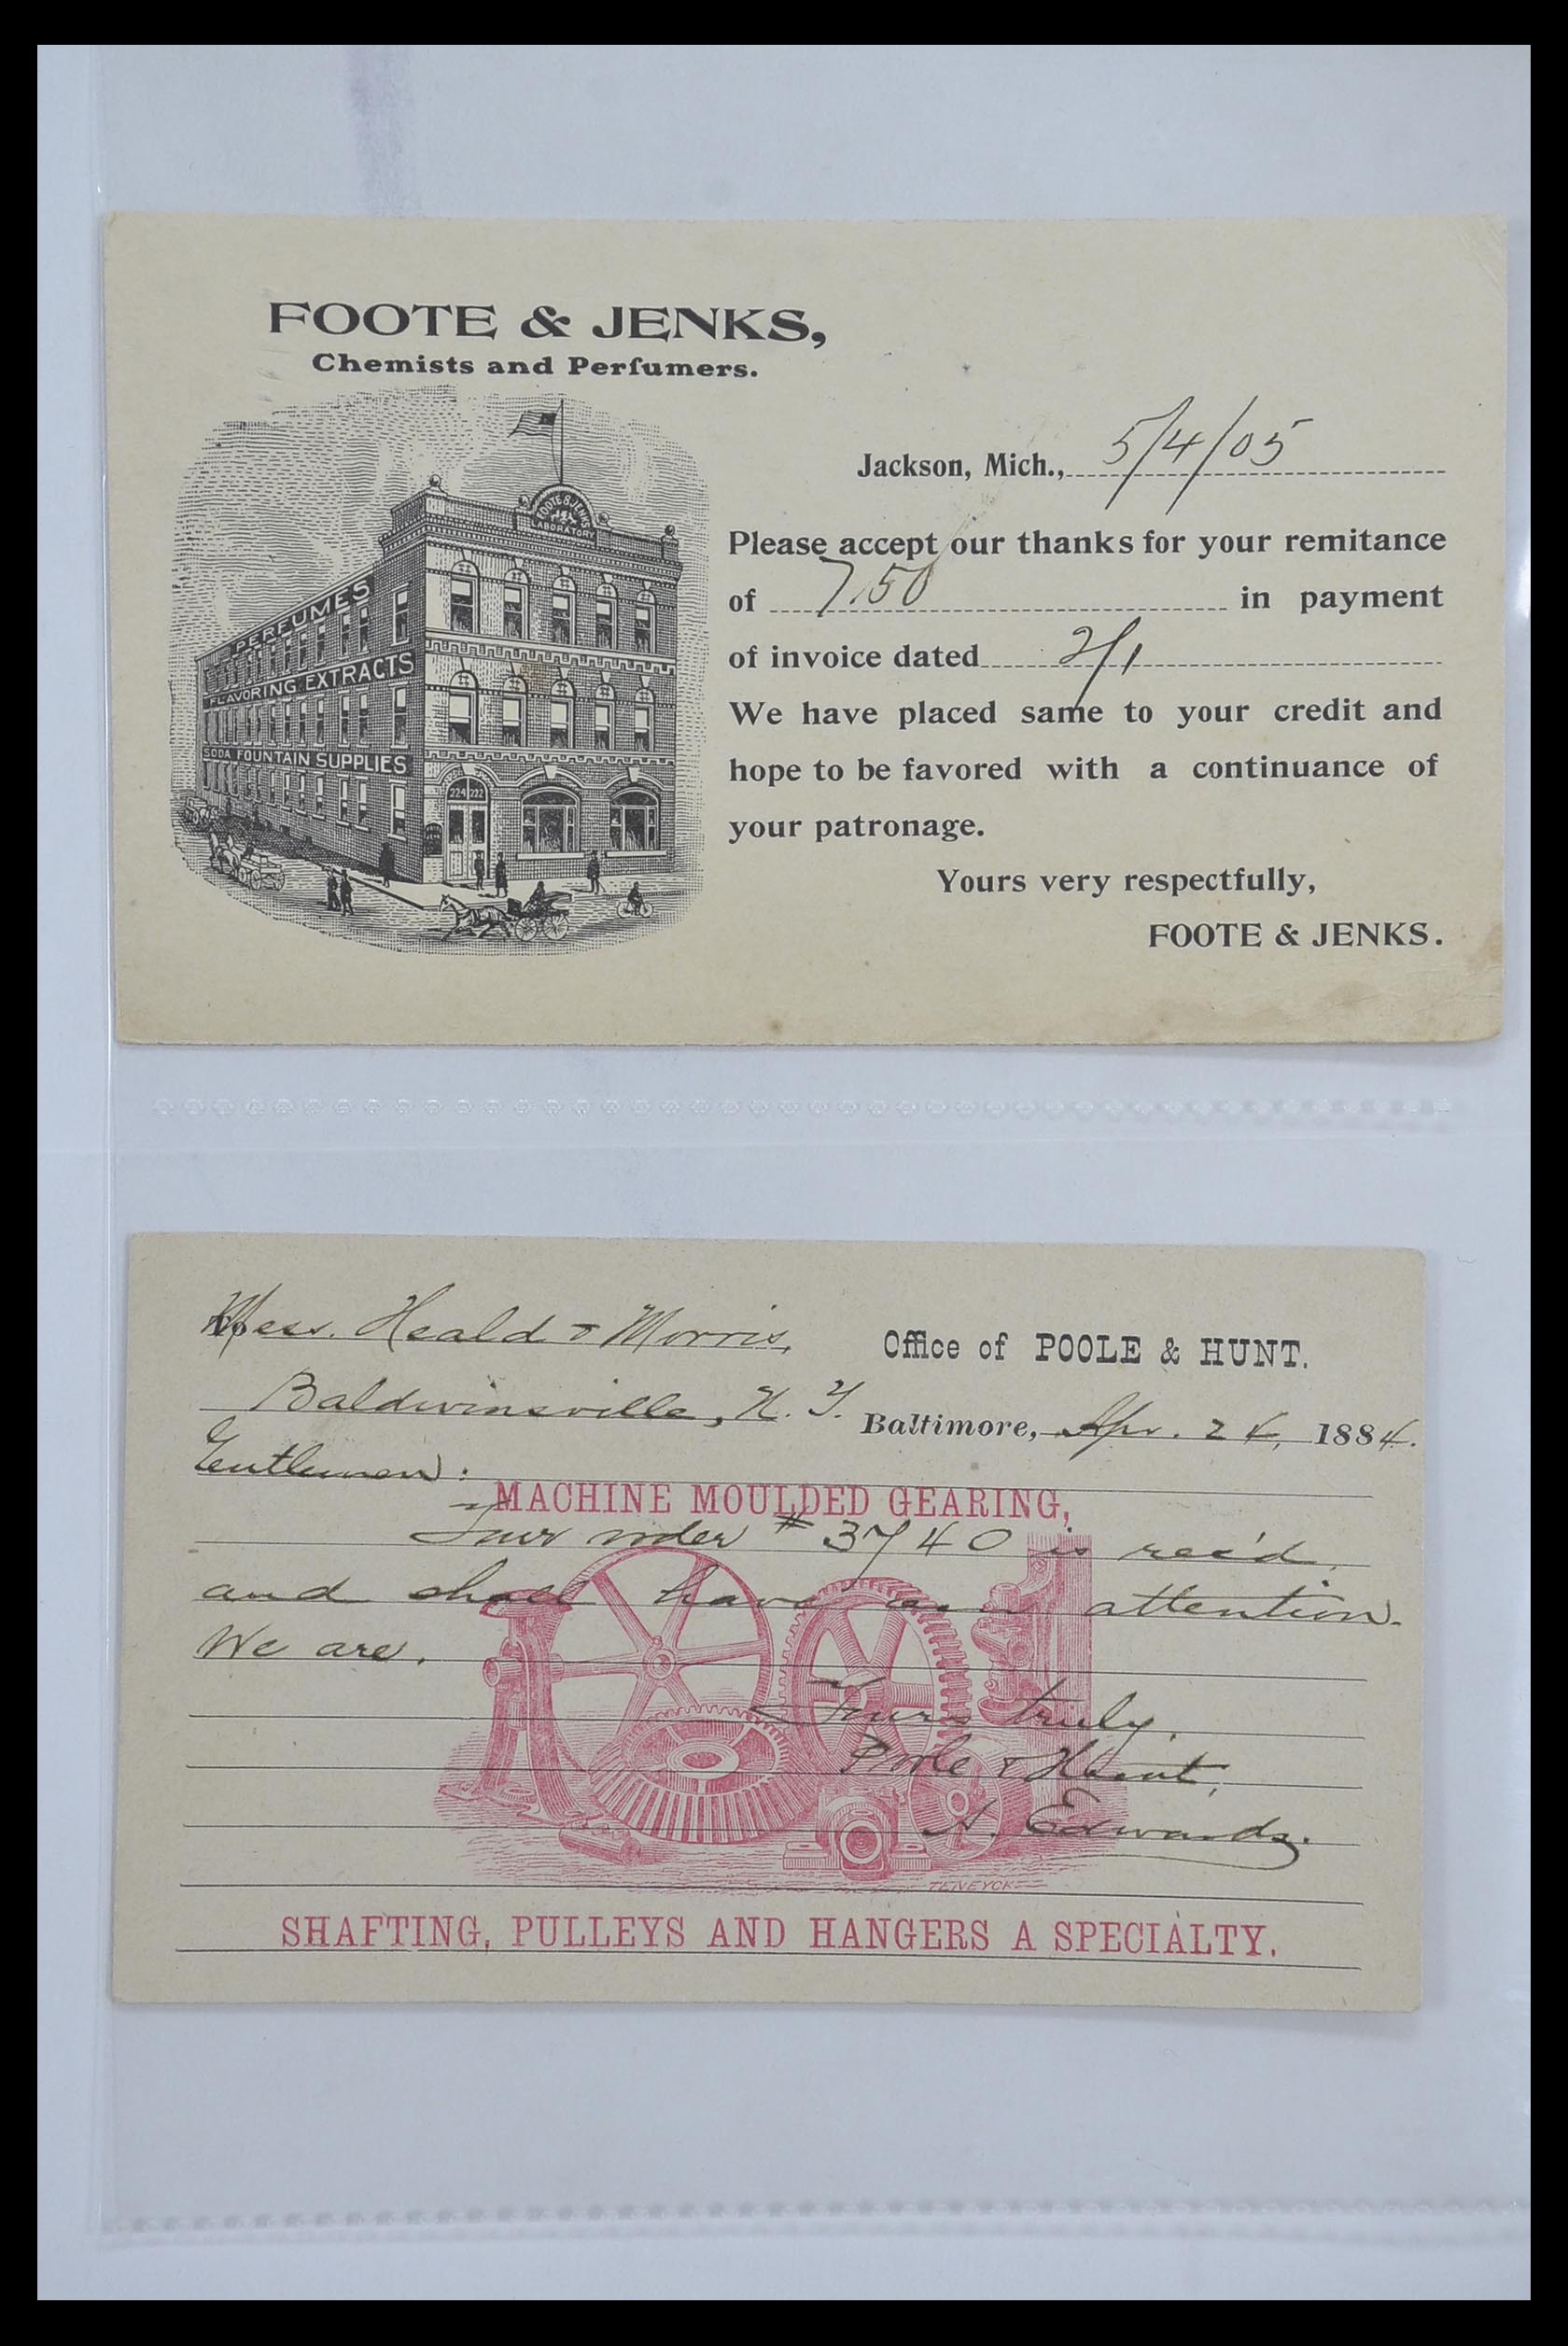 FOOTE & JENKS,
Chemists and Perfumers.
FOOTE & JENKS
LABORATORY
PERFUMES
FLAVORING EXTRACTS
SODA FOUNTAIN SUPPLIES
224 222
Jackson, Mich., 5/4/05
Please accept our thanks for your remitance
of 7.50 in payment
of invoice dated 2/1
We have placed same to your credit and
hope to be favored with a continuance of
your patronage.
Yours very respectfully,
FOOTE & JENKS.
Mess. Heald & Morris,
Office of POOLE & HUNT.
Baldwinsville, N. Y.
Baltimore, Apr. 24, 1884.
Gentlemen:
MACHINE MOULDED GEARING,
Your order #3740 is rec'd,
and shall have our attention.
We are,
Yours truly,
Poole & Hunt,
A. Edwards.
TENEYCK
SHAFTING, PULLEYS AND HANGERS A SPECIALTY.